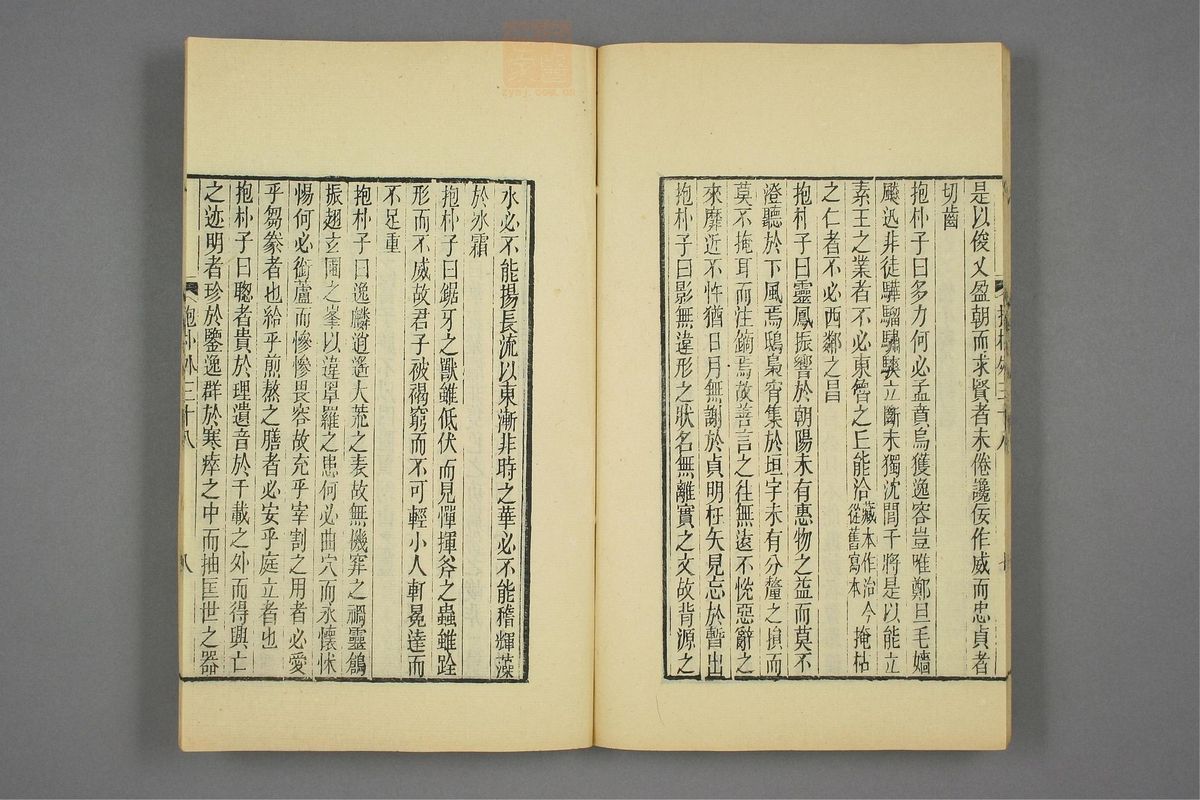 是以俊乂盈朝而求賢者未倦讒佞作威而忠貞者
切齒
抱朴子曰多力何必孟賁烏獲逸容豈唯鄭旦毛嬙
飈迅非徒驊騮驌驦立斷未獨沈閭干將是以能立
素王之業者不必東魯之丘能洽藏本作治今從舊寫本掩枯
之仁者不必西鄰之昌
抱朴子曰靈鳳振響於朝陽未有惠物之益而莫不
澄聽於下風焉鴟梟宵集於垣宇未有分釐之損而
莫不掩耳而注鏑焉故善言之往無遠不悅惡辭之
來靡近不忤猶日月無謝於貞明枉矢見忘於暫出
抱朴子曰影無違形之狀名無離實之文故背源之
水必不能揚長流以東漸非時之華必不能稽輝藻
於冰霜
抱朴子曰鋸牙之獸雖低伏而見憚揮斧之蟲雖跧
形而不威故君子被褐窮而不可輕小人軒冕達而
不足重
抱朴子曰逸麟逍遙大荒之表故無機穽之禍靈鶬
振翅玄圃之峯以違罩羅之患何必曲穴而永懷怵
惕何必銜蘆而慘慘畏容故充乎宰割之用者必愛
乎芻豢者也給乎煎熬之膳者必安乎庭立者也
抱朴子曰聰者貴於理遺音於千載之外而得興亡
之迹明者珍於鑒逸群於寒瘁之中而抽匡世之器
抱朴外三十八
八